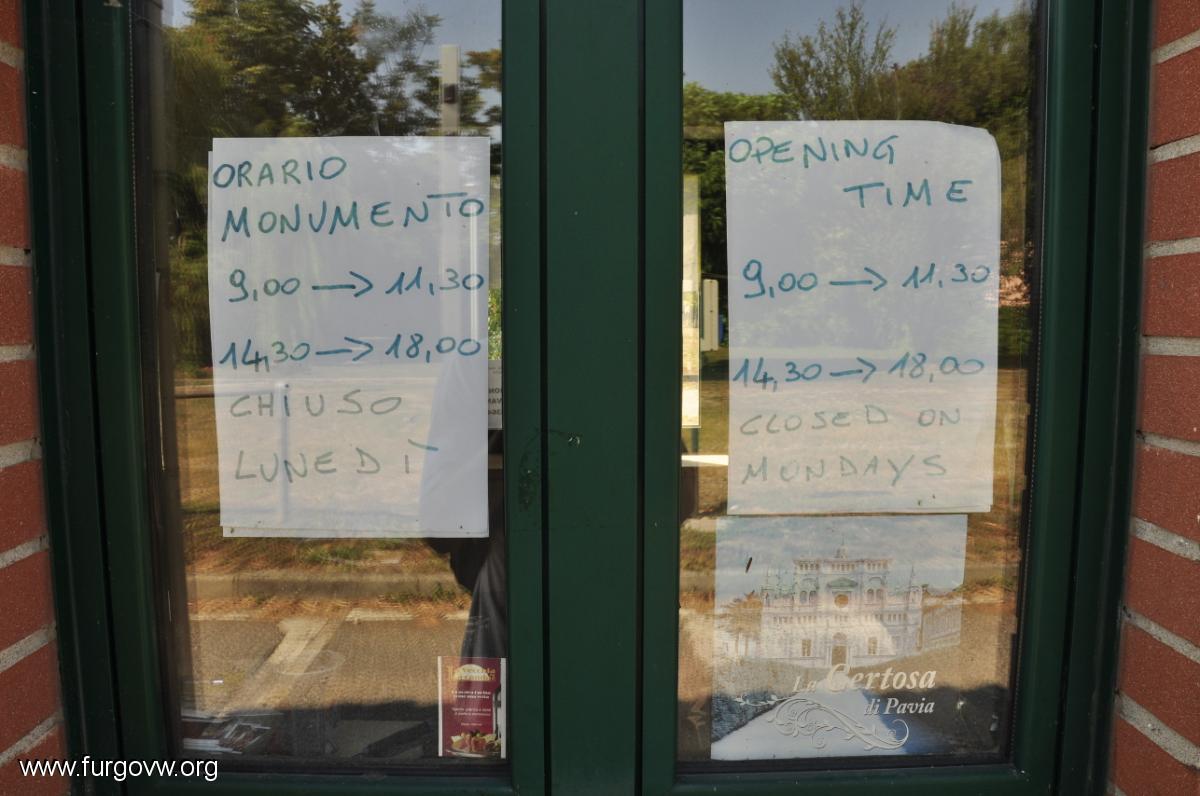 ORARIO
MONUMENTO
9,00 → 11,30
14,30 → 18,00
CHIUSO
LUNEDÌ
OPENING
TIME
9,00 → 11,30
14,30 → 18,00
CLOSED ON
MONDAYS
La Certosa
di Pavia
www.furgovw.org